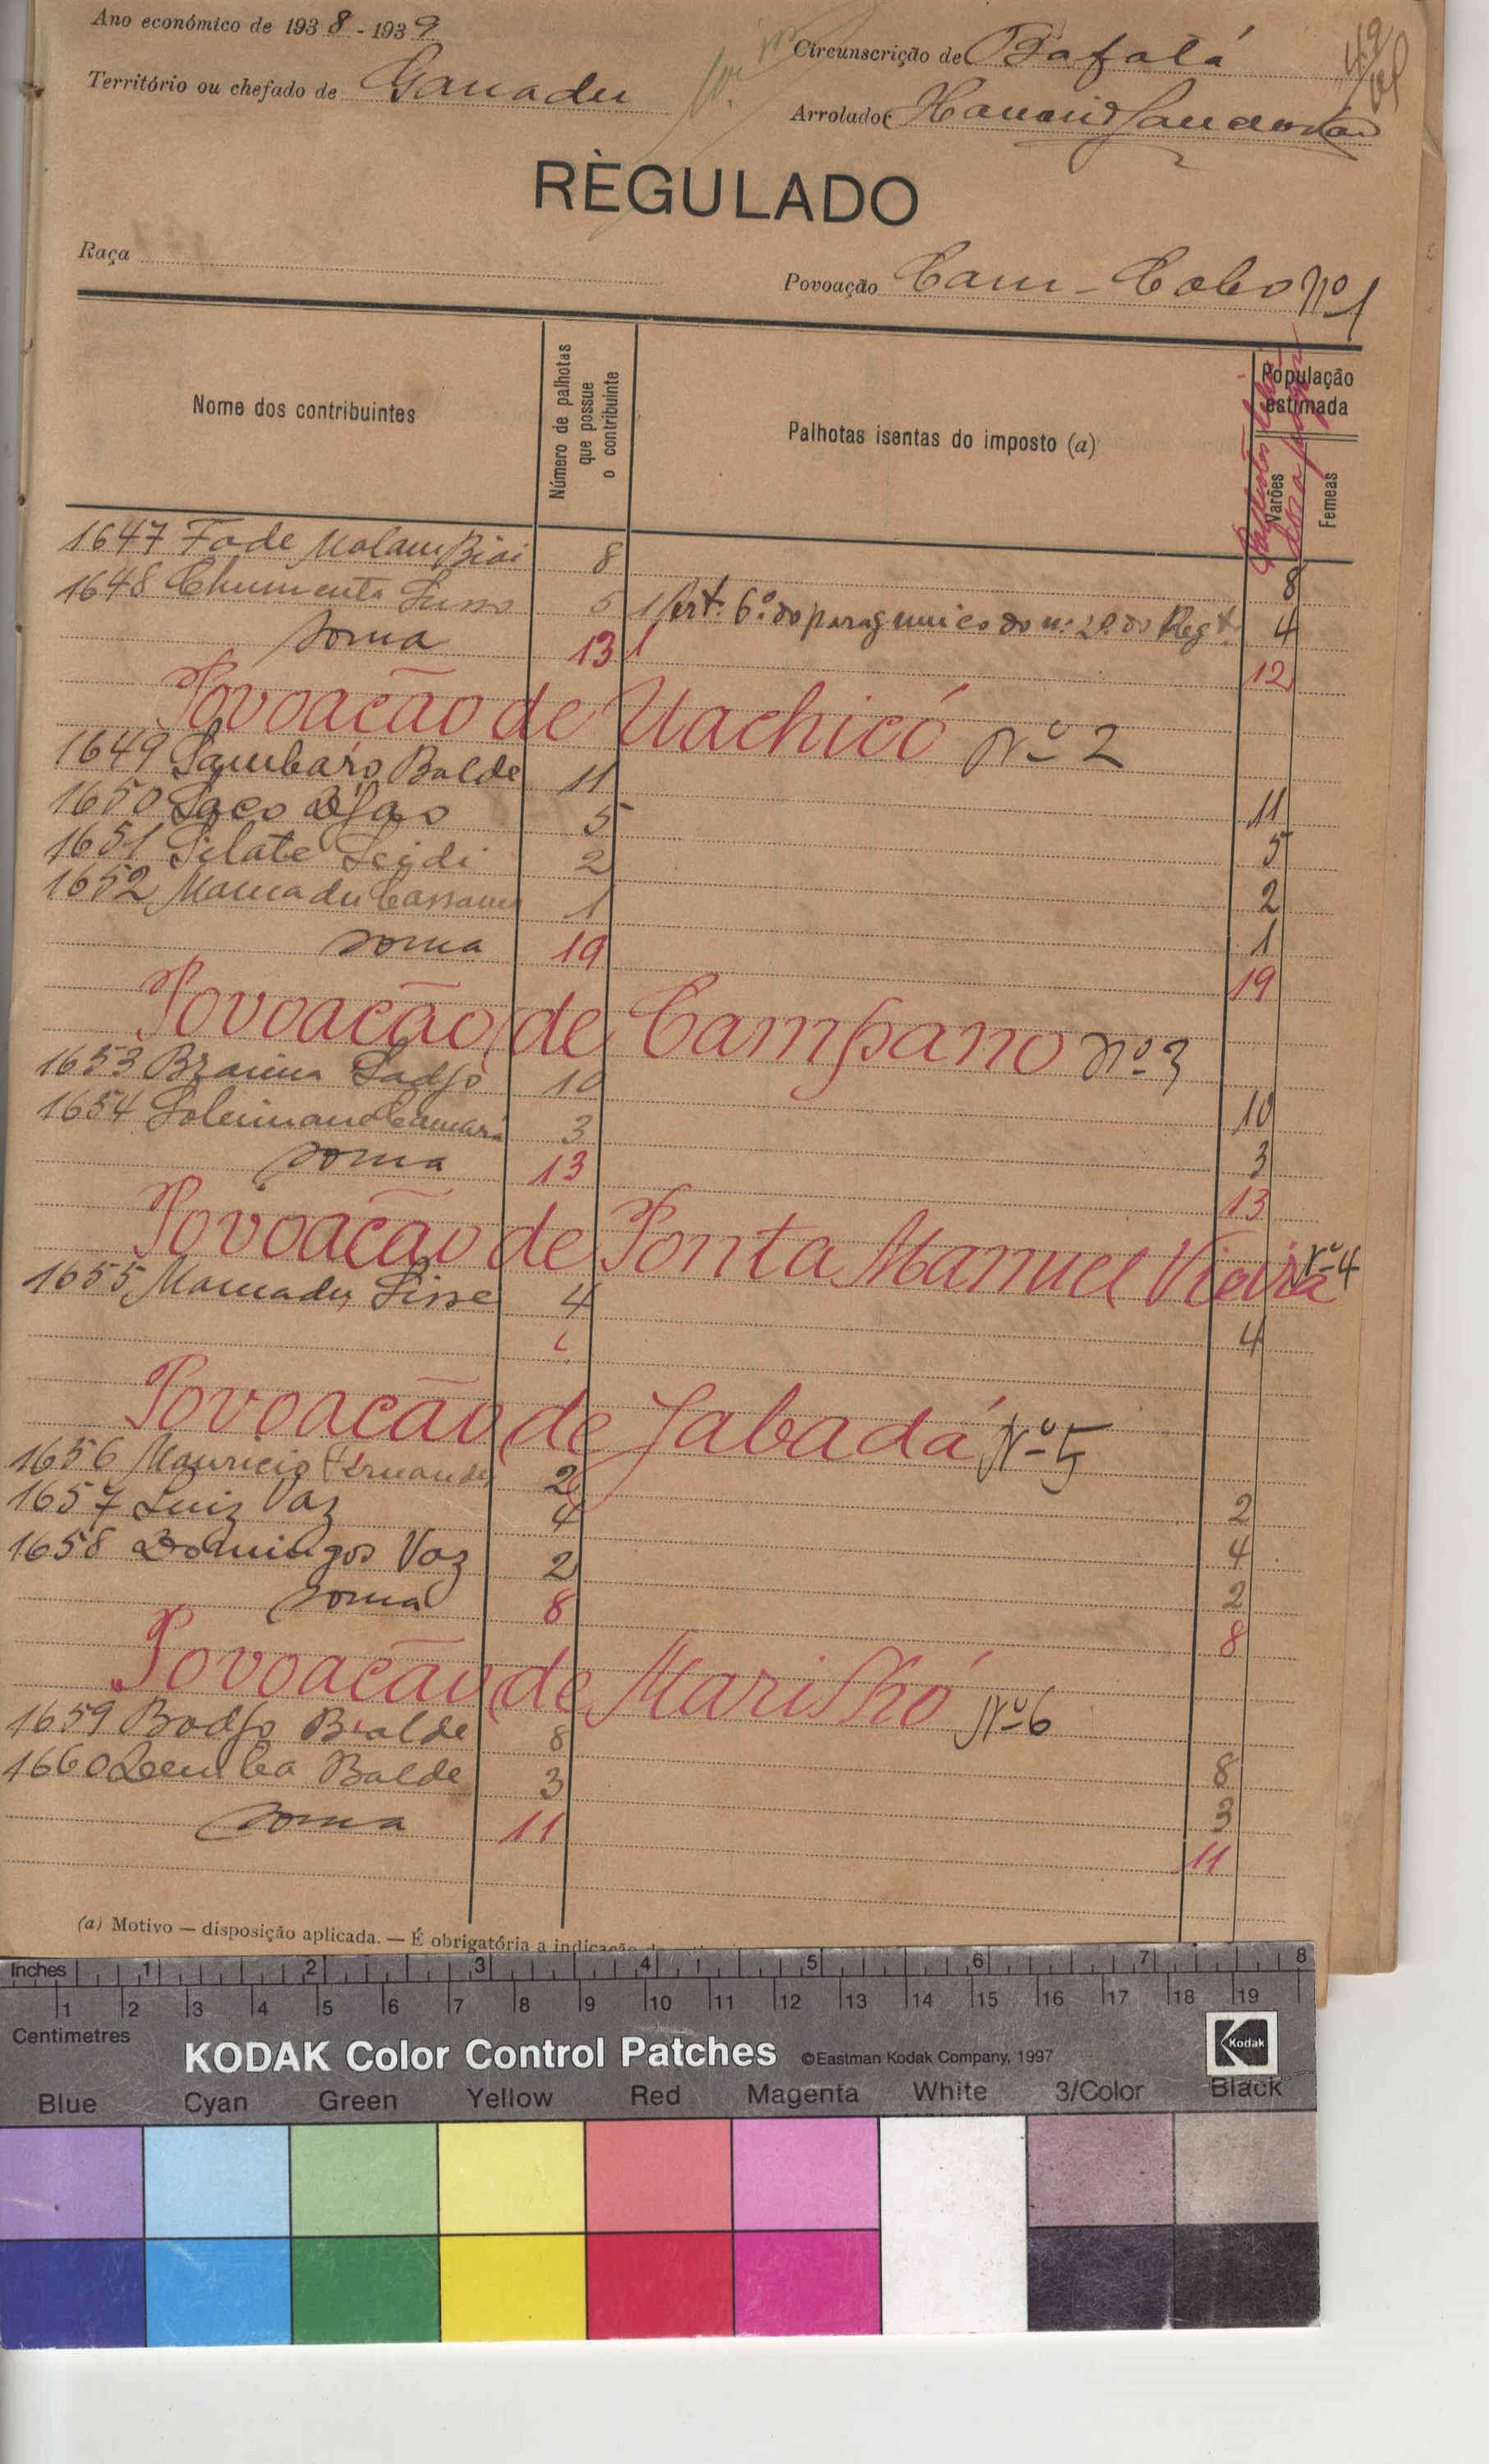 Ano económico de 1938-1939
Circunscrição de Bafatá
49
Território ou chefado de Ganadu
Arrolador
RÈGULADO
Raça
Povoação Cam-Cobo Nº 1
Nome dos contribuintes
Número de palhotas que possue o contribuinte
Palhotas isentas do imposto (a)
População estimada
Varões
Femeas
1647 Fode Malam Biai 8 8
1648 Chumenta 5 1 Art. 6º do parag unico do nº 2º do Regt. 4
Soma 13 1 12
Povoação de Uachicó Nº 2
1649 Sambaro Balde 11 11
1650 Saco 5 5
1651 Silate Seidi 2 2
1652 Mamadu Cassama 1 1
Soma 19 19
Povoação de Campano Nº 3
1653 Braima Sadjo 10 10
1654 Soleimane Camará 3 3
Soma 13 13
Povoação de Ponta Manuel Vieira Nº 4
1655 Mamadu Sisse 4 4
Povoação de Jabadá Nº 5
1656 Mauricio Fernandes 2 2
1657 Luiz Vaz 4 4
1658 Domingos Vaz 2 2
Soma 8 8
Povoação de Nº 6
1659 Bodjo Balde 8 8
1660 Demba Balde 3 3
Soma 11 11
(a) Motivo — disposição aplicada. — É obrigatória a indicação
Inches 1 2 3 4 5 6 7 8
1 2 3 4 5 6 7 8 9 10 11 12 13 14 15 16 17 18 19
Centimetres
KODAK Color Control Patches ©Eastman Kodak Company, 1997 Kodak
Blue Cyan Green Yellow Red Magenta White 3/Color Black